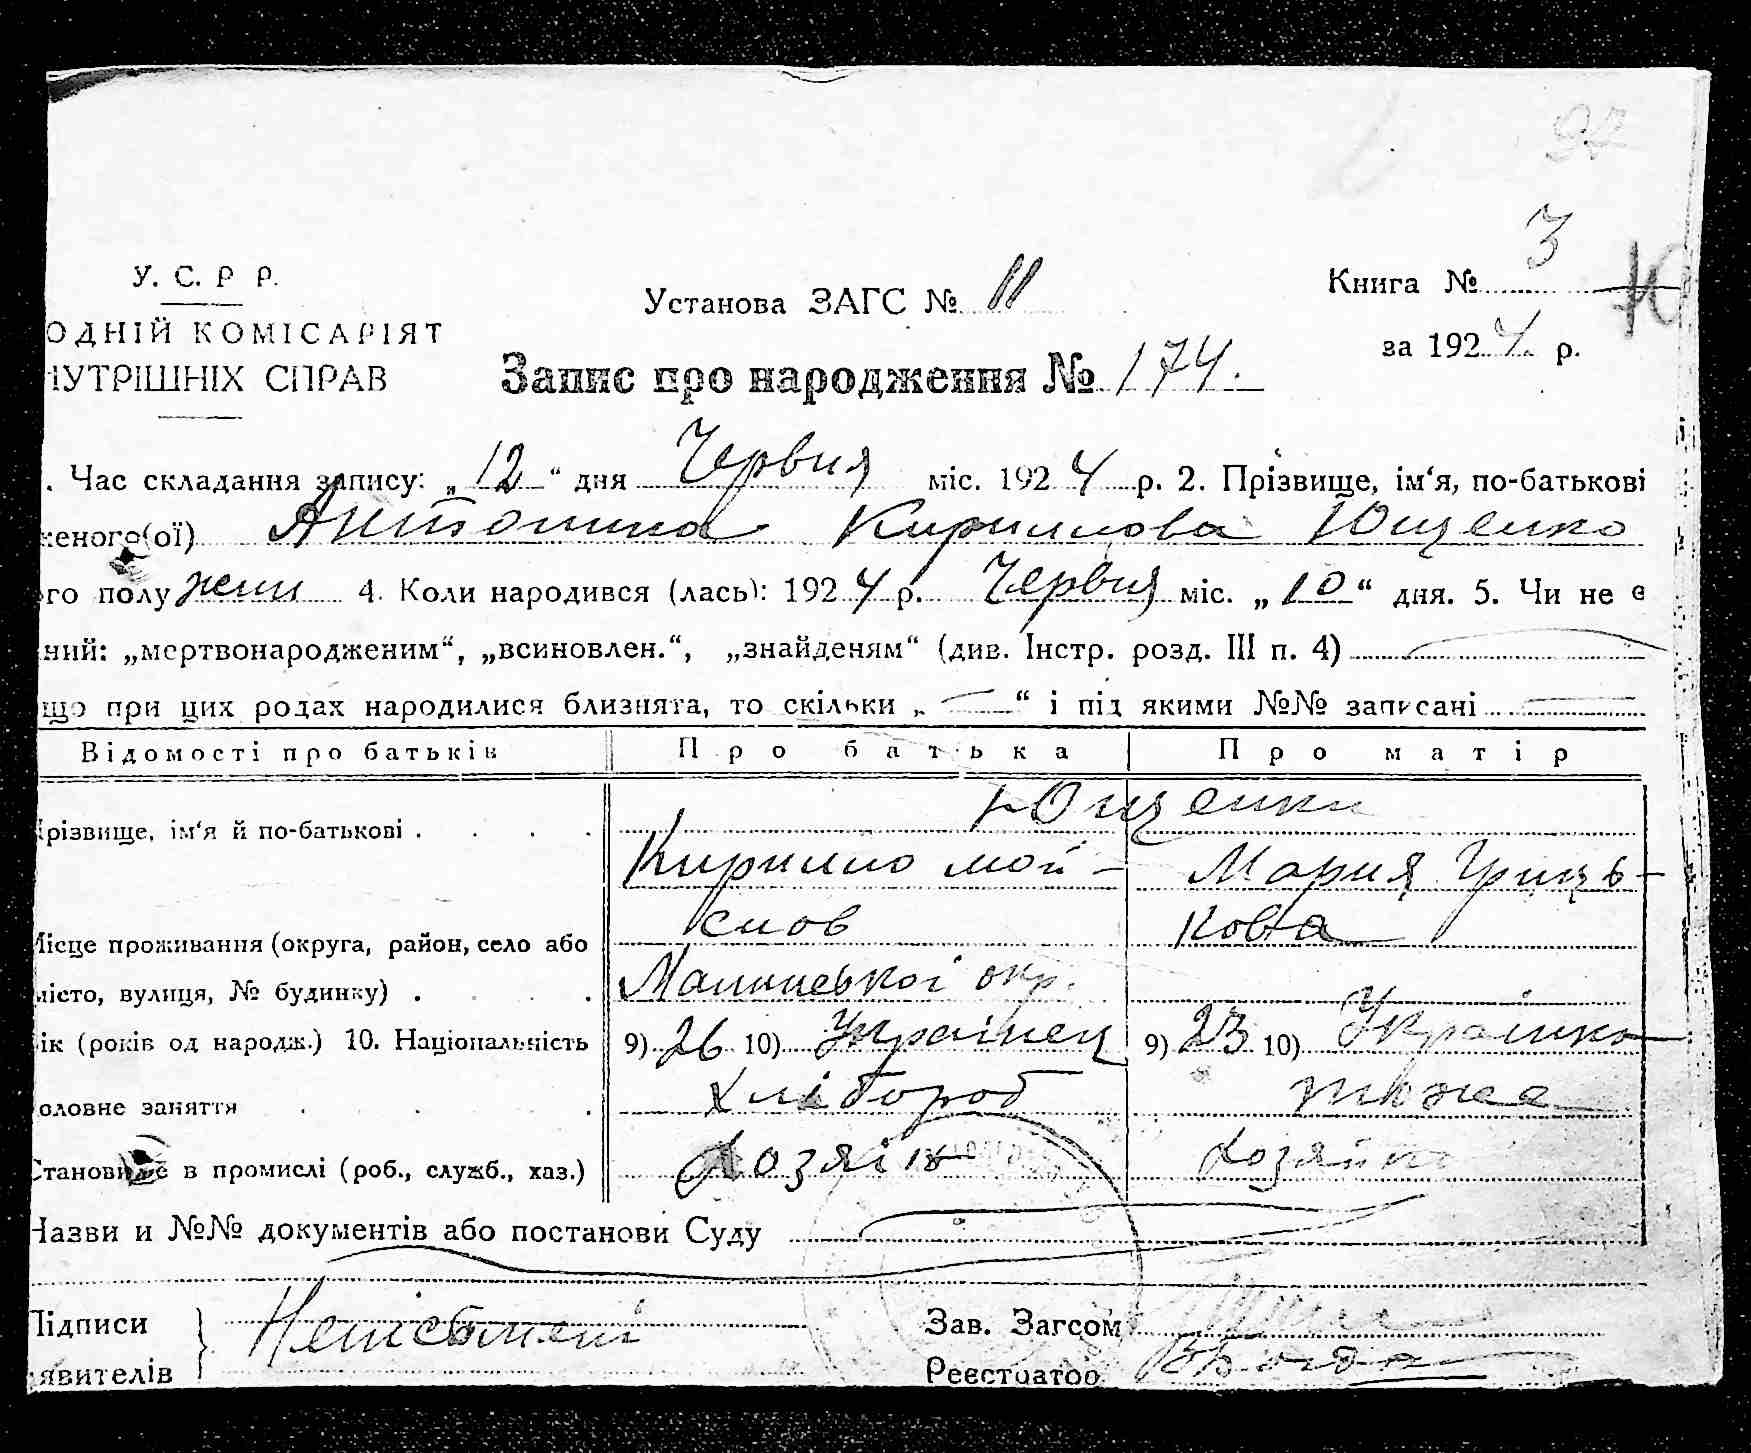 97
3
У. С. Р Р. Установа ЗАГС № 11 Книга № 10
ОДНІЙ КОМІСАРІЯТ за 1924 р.
НУТРІШНІХ СПРАВ Запис про народження № 174.
. Час складання запису: „ 12 “ дня Червня міс. 1924 р. 2. Прізвище, ім‘я, по-батькові
женого(ої) Антонина Кирилова Ющенко
ого полу жени 4. Коли народився (лась): 1924 р. Червня міс. „ 10 “ дня. 5. Чи не є
ний: „мертвонародженим“, „всиновлен.“, „знайденям“ (див. Інстр. розд. III п. 4)
що при цих родах народилися близнята, то скільки „ — “ і під якими №№ записані
Відомості про батьків Про батька Про матір
Ющенки
Прізвище, ім‘я й по-батькові . . . .
Кирило мой- Мария Гриць-
сиов кова
Місце проживання (округа, район, село або
місто, вулиця, № будинку) . . . . окр.
ік (років од народж.) 10. Національність 9) 26 10) Українец 9) 23 10) Українка
оловне заняття . . . . Хлібороб тоже
Становище в промислі (роб., служб., хаз.) Хозяін Хозяйка
Назви и №№ документів або постанови Суду
Підписи Неписьмені Зав. Загсом
явителів Реєстратор